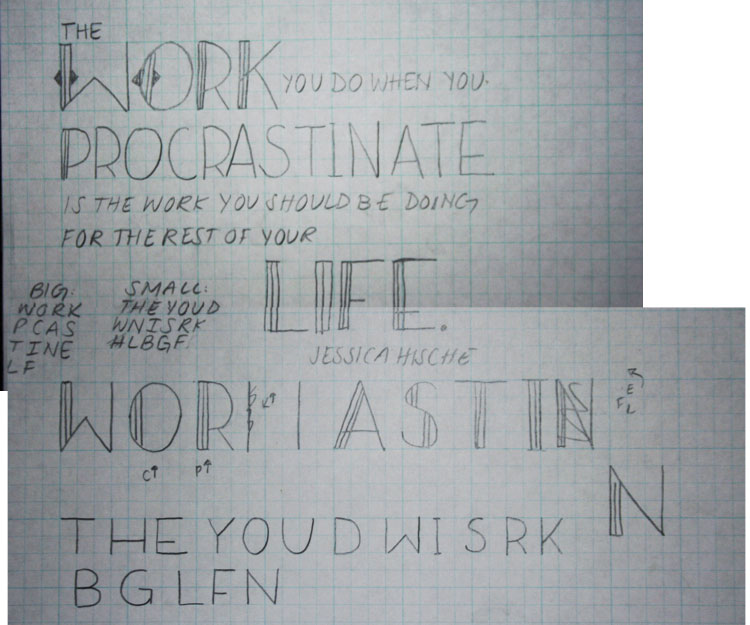 THE
WORK YOU DO WHEN YOU
PROCRASTINATE
IS THE WORK YOU SHOULD BE DOING
FOR THE REST OF YOUR
LIFE.
JESSICA HISCHE
BIG:
WORK
PCAS
TINE
LF
SMALL:
THE YOUD
WNISRK
HLBGF
WORK I A S T I N
C↑ P↑
R
E
F L
N
THE YOUD WISRK
BGLFN